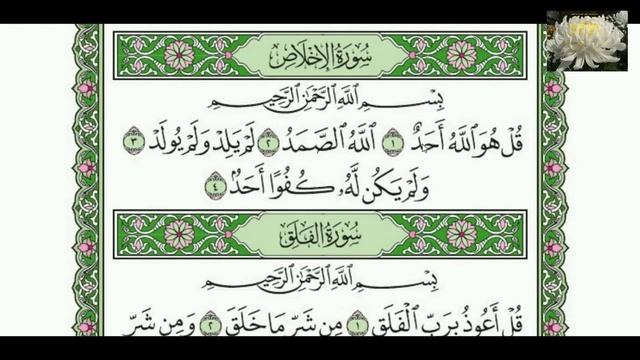 سُورَةُ الإِخْلَاصِ
بِسْمِ اللَّهِ الرَّحْمَٰنِ الرَّحِيمِ
قُلْ هُوَ اللَّهُ أَحَدٌ ١ اللَّهُ الصَّمَدُ ٢ لَمْ يَلِدْ وَلَمْ يُولَدْ ٣
وَلَمْ يَكُن لَّهُ كُفُوًا أَحَدٌ ٤
سُورَةُ الفَلَقِ
بِسْمِ اللَّهِ الرَّحْمَٰنِ الرَّحِيمِ
قُلْ أَعُوذُ بِرَبِّ الْفَلَقِ ١ مِن شَرِّ مَا خَلَقَ ٢ وَمِن شَرِّ